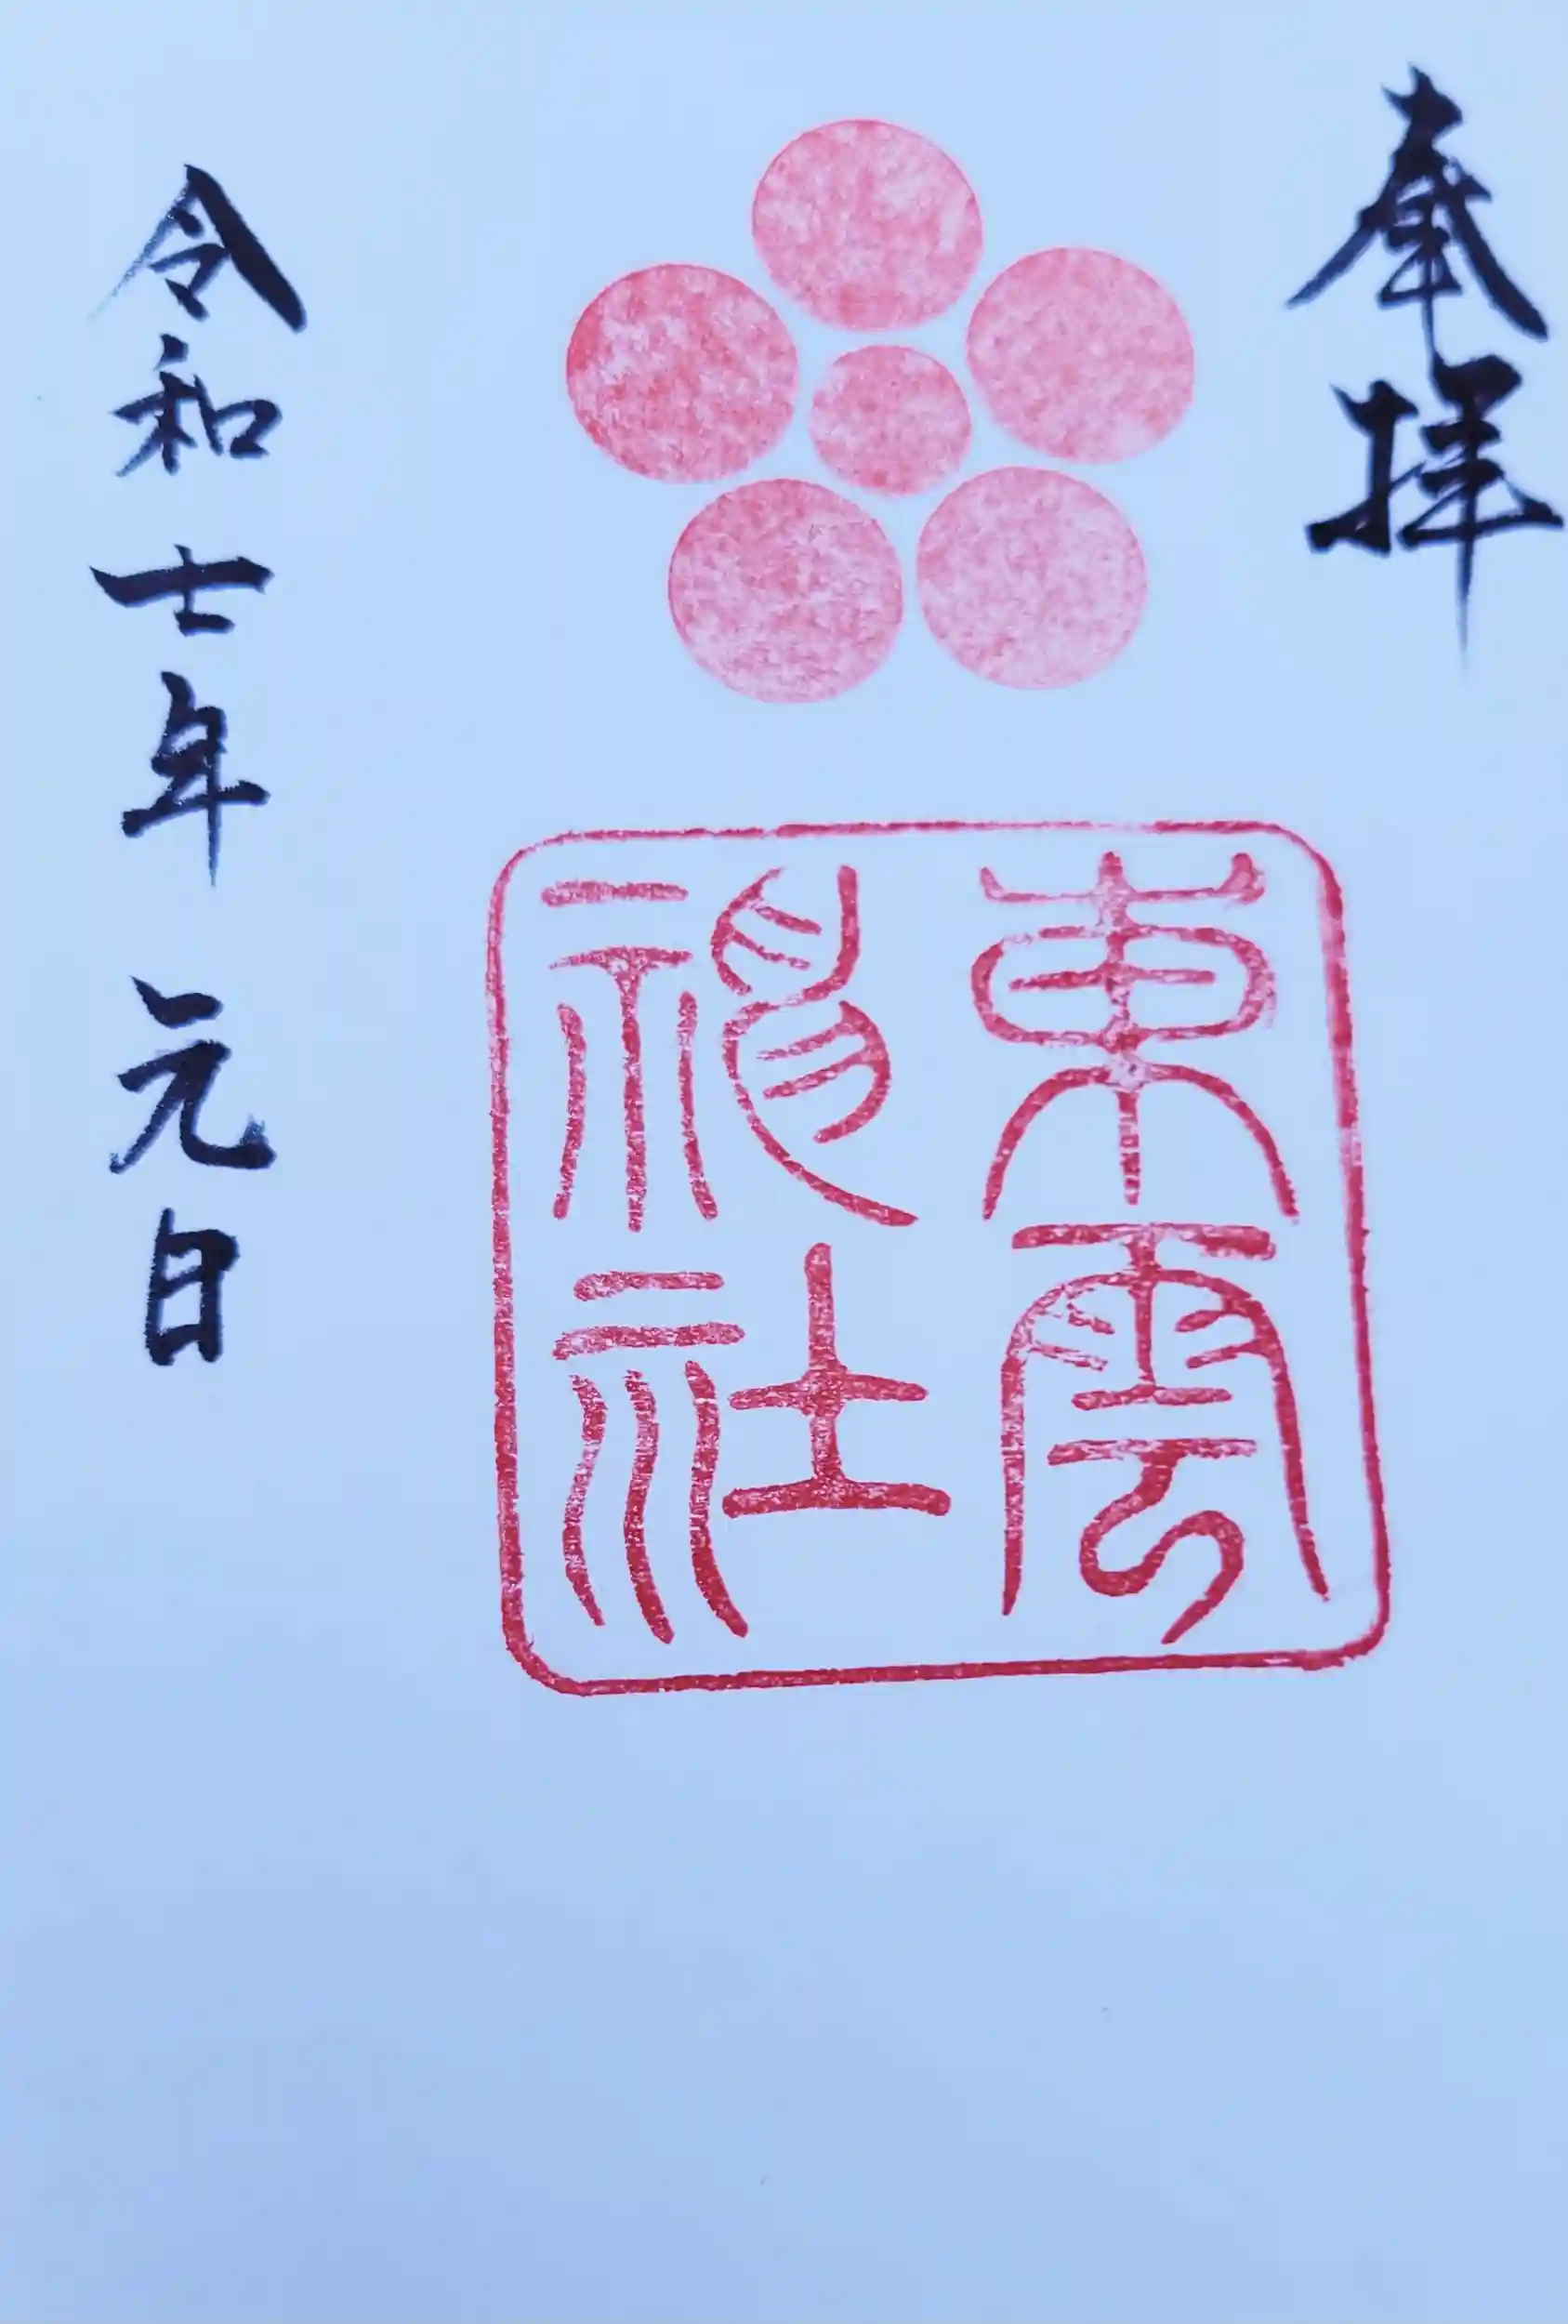 奉拝
東雲
神社
令和士年 元日